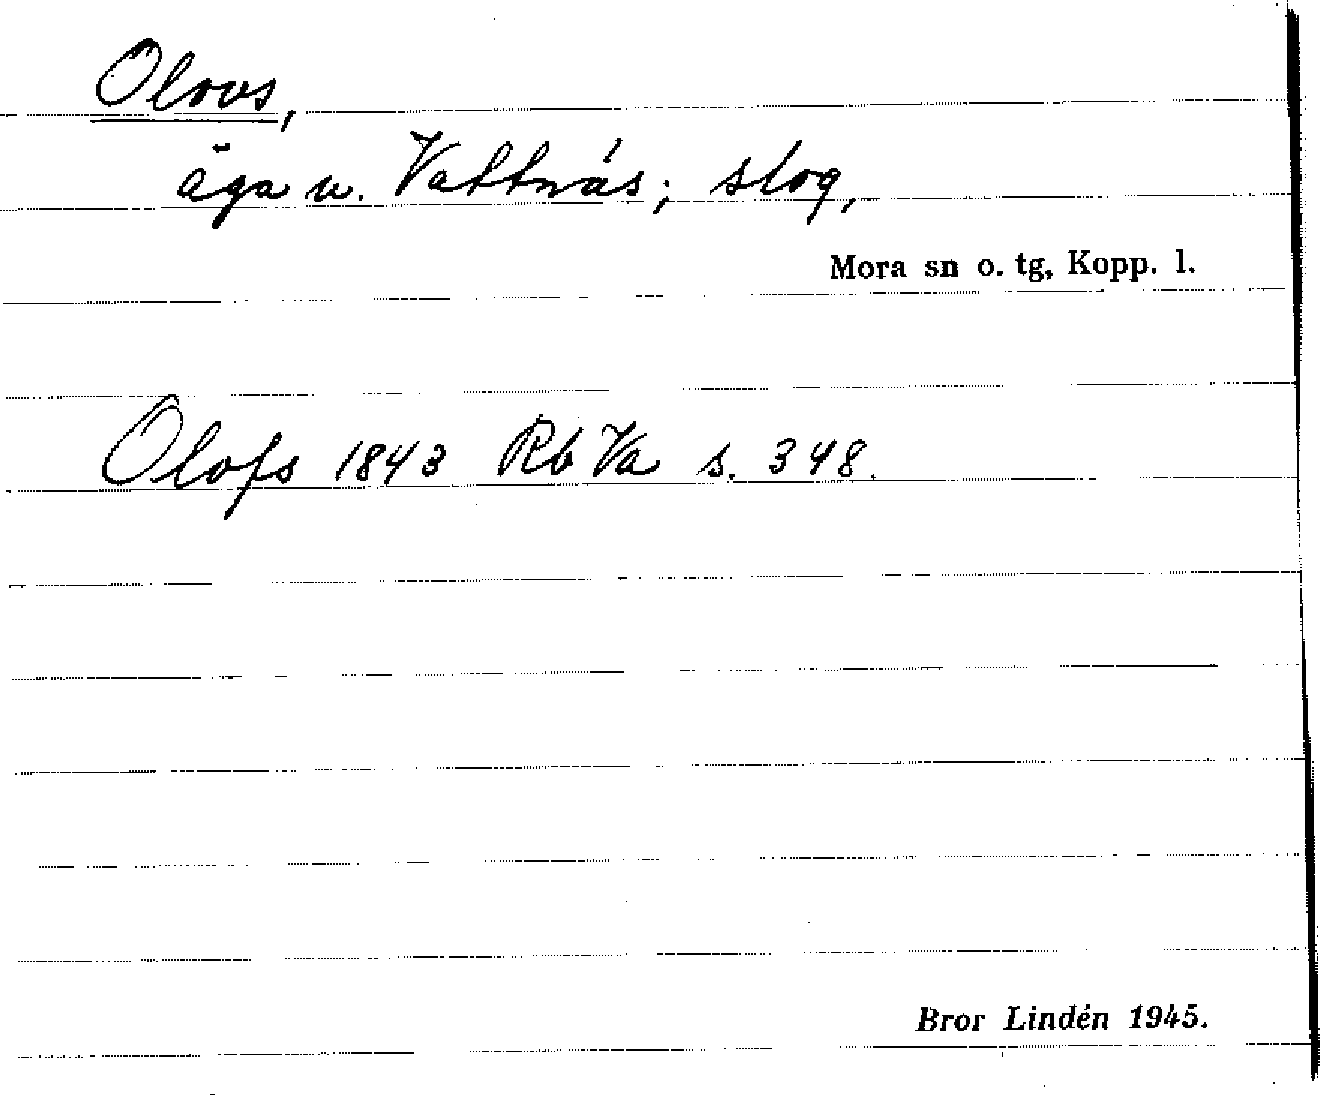 Olovs,
äga u. Vattnäs; slog,
Mora sn o. tg, Kopp. l.
Olofs 1843 Rb Va s. 348.
Bror Lindén 1945.